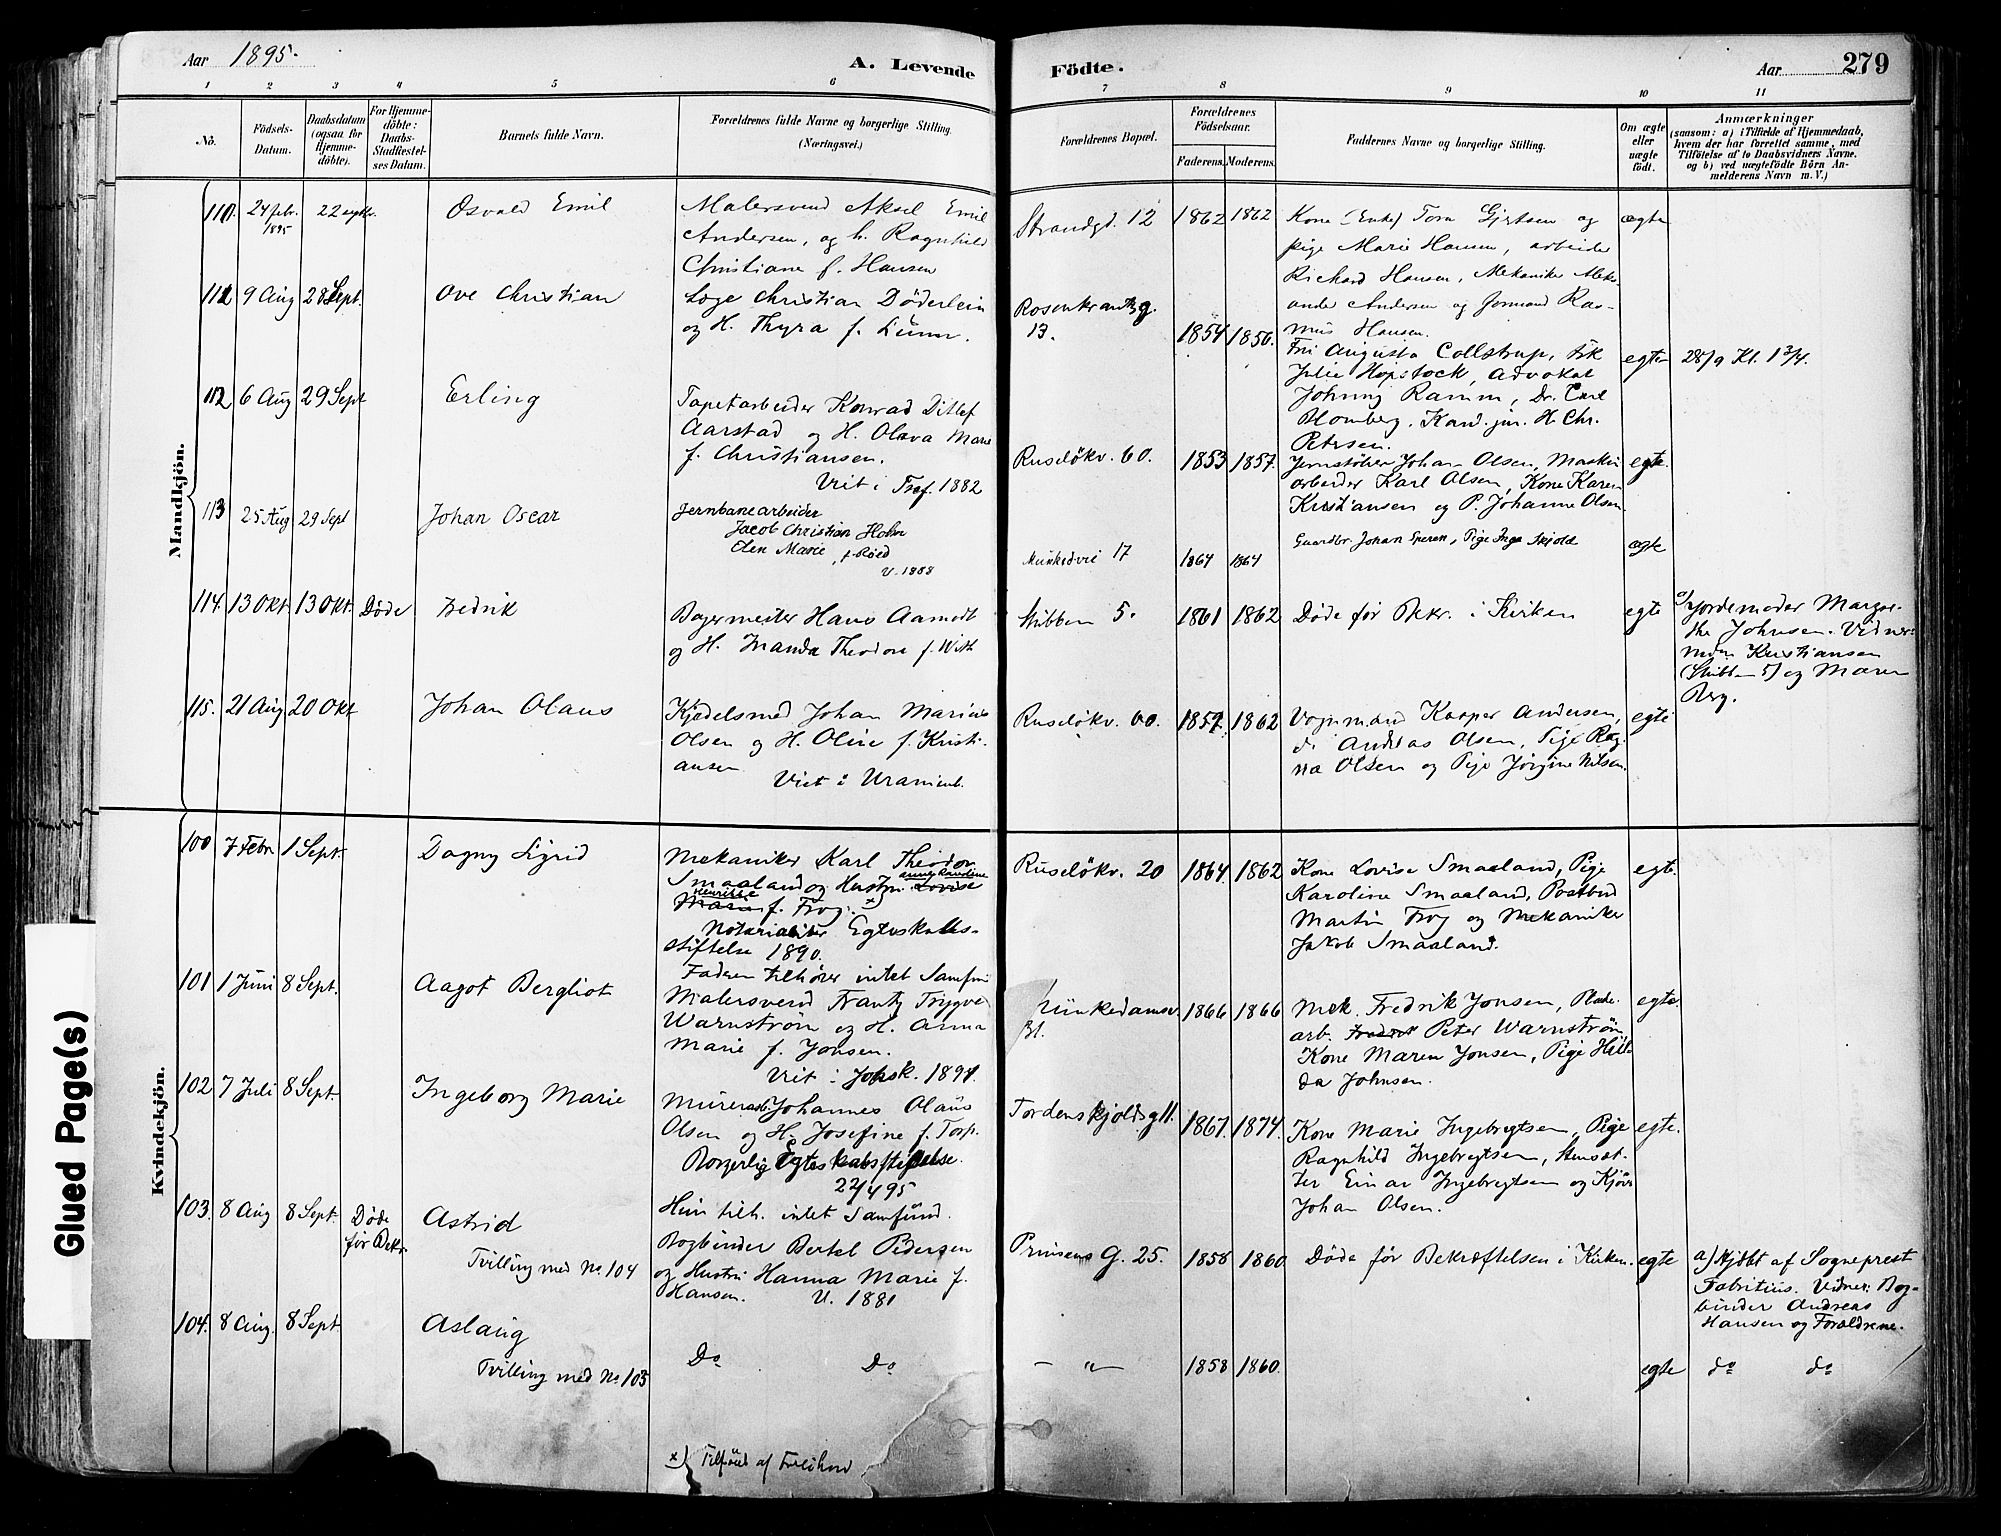 Aar 1895.
A. Levende
Födte.
Aar
279
1 2 3 4 5 6 7 8 9 10 11
No.
Födsels-
Datum.
Daabsdatum
(ogsaa for
Hjemme-
döbte).
For Hjemme-
döbte:
Daabs-
Stadfæstel-
ses Datum.
Barnets fulde Navn.
Forældrenes fulde Navne og borgerlige Stilling.
(Næringsvei.)
Forældrenes Bopæl.
Forældrenes
Födselsaar.
Faderens. Moderens.
Faddernes Navne og borgerlige Stilling.
Om ægte
eller
uægte
födt.
Anmærkninger
(saasom: a) i Tilfælde af Hjemmedaab,
hvem der har forrettet samme, med
Tilföielse af to Daabsvidners Navne.
og b) ved uægtefödte Börn An-
melderens Navn m. V.)
Mandkjön.
110. 24 febr. 1895 22 septbr. Osvald Emil
Malersvend Aksel Emil
Andersen, og h. Ragnhild
Christiane f. Hansen
Strandgt. 12 1862 1862
Kone (Enke) Tora Gjertsen og
pige Marie Hansen, arbeider
Richard Hansen, Mekaniker
Andersen og Ras-
mus Hansen.
ægte
111 9 Aug 28 Sept. Ove Christian
Læge Christian Döderlein
og H. Thyra f. Lunn.
Rosenkrantzg.
13. 1854 1856.
Fru Augusta Collstrup, Frk
Julie Hopstock, Advokat
Johnny Ramm, Dr. Carl
Blomberg. Kand. jur. H. Chr.
Petersen.
egte 28/9 Kl. 1 3/4.
112 6 Aug 29 Sept Erling
Tapetarbeider Konrad Ditlef
Aarstad og H. Olava Marie
f. Christiansen.
Viet i Tref. 1882
Ruselökv. 60. 1853 1857.
Jernstöber Johan Olsen, Maskin
arbeider Karl Olsen, Kone Karen
Kristiansen og P. Johanne Olsen
egte.
113 25 Aug 29 Sept Johan Oscar
Jernbanearbeider
Jacob Christian Holm
Elen Marie, f. Röed
V. 1888
Munkedvei 17 1864 1864
Gaardbr. Johan Iversen, Pige Inga Skjold
ægte
114. 13 Okt. 13 Okt. Døde Fredrik
Bagermester Hans Aamodt
og H. Inanda Theodora f. With
Stubben 5. 1861 1862
Døde før Bekr. i Kirken
egte
a) Jordemoder Margre-
the Johnsen. Vidner:
Kristiansen
(Stubben 5) og Maren
Berg.
115. 21 Aug 20 Okt Johan Olaus
Kjedelsmed Johan Marius
Olsen og H. Oline f. Kristi-
ansen
Viet i Uranienb.
Ruselökv. 60. 1857. 1862
Vognmand Kasper Andersen,
do Andreas Olsen, Pige Rag-
na Olsen og Pige Jörgine Nilsen.
egte
Kvindekjön.
100 7 Febr 1 Sept. Dagny Sigrid
Mekaniker Karl Theodor
Smaaland og Hustru Lovise
Anna Karoline
Henriette
Marie f. Frog. x)
Notarialiter Egteskabs-
stiftelse 1890.
Faderen tilhører intet Samfund
Ruselökv. 20 1864 1862
Kone Lovise Smaaland, Pige
Karoline Smaaland, Postbud
Martin Frog og Mekaniker
Jakob Smaaland.
egte.
101 1 Juni 8 Sept. Aagot Bergliot
Malersvend Frantz Trygve
Warnström og H. Anna
Marie f. Jonsen.
Viet i Johsk. 1891.
Munkedamsv.
1866 1866
Mek. Fredrik Jonsen, Plade-
arb. Fredrik Peter Warnström,
Kone Maren Jonsen, Pige Hil-
da Johnsen.
egte
102 7 Juli 8 Sept. Ingeborg Marie
Murerarb. Johannes Olaus
Olsen og H. Josefine f. Torp.
Borgerlig Egteskabsstiftelse.
22/4 95
Hun tilh. intet Samfund.
Tordenskjoldsg 11. 1867. 1874.
Kone Marie Ingebregtsen, Pige
Ragnhild Ingebregtsen, Stensæt-
ter Einar Ingebregtsen og Kjörer
Johan Olsen.
egte.
103. 8 Aug 8 Sept. Døde
før Bekr. Astrid
Tvilling med No. 104
Bogbinder Bertel Pedersen
og Hustru Hanna Marie f.
Hansen. V. 1881
Prinsens G. 25. 1858 1860.
Døde før Bekræftelsen i Kirken.
egte
a) Hjdbt af Sogneprest
Fabritius. Vidner: Bog-
binder Andreas
Hansen og Forældrene.
104. 8 Aug. 8 Sept. Aslaug
Tvilling med No. 103
Do Do
— " — 1858 1860.
egte do do
x) Tilföiet af
Glued Page(s)